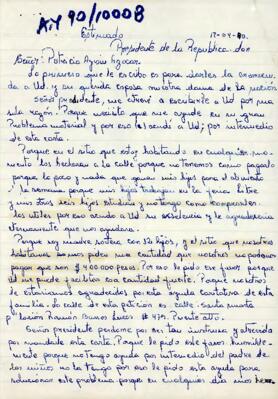 AM 90/10008
Estimado 17-04-90.
Presidente de la Republica. don
Señor: Patricio Aylwin Azocar.
Lo primero que le escribo es para darles la
a Ud y su querida esposa nuestra dama de la nación
Señor presidente, me atreví a escribirle a Ud por una
sola razón. Porque necesito que me ayude en un gran
Problema material y por eso le acudí a Ud; por intermedio
de esta carta.
Porque en el sitio que estoy habitando en cualquier mo-
mento los hecharan a la calle porque no tenemos como pagarlo
porque lo poco y nada que ganan mis hijos para el alimento
la semana porque mis hijos trabajan en la feria libre
y mis otros seis hijos estudian y no tengo como comprarles
los utiles por eso acudo a Ud su exelencia y le agradeceria
eternamente que nos ayudara.
Porque soy madre soltera con 12 hijos, y el sitio que nosotros
habitamos los piden una cantidad que nosotros no podemos
pagar que son $ 400.000 pesos. Por eso le pido ese favor porque
Ud me puede ayudar esa cantidad fuerte. Porque nosotros
le estariamos agradecidos por esta ayuda caritativa de esta
familia. la calle de esta peticion es calle. Santa Marta
población Ramón Barros Luco # 479. Puente Alto.
Señor presidente perdone por ser tan inoportuna y atrevida
por mandarle esta carta. Porque le pido este favor humilde-
mente porque no tengo ayuda por intermedio del padre de
los niños. no la tengo por eso le pido esta ayuda para
solucionar este problema porque en cualquier dia nos